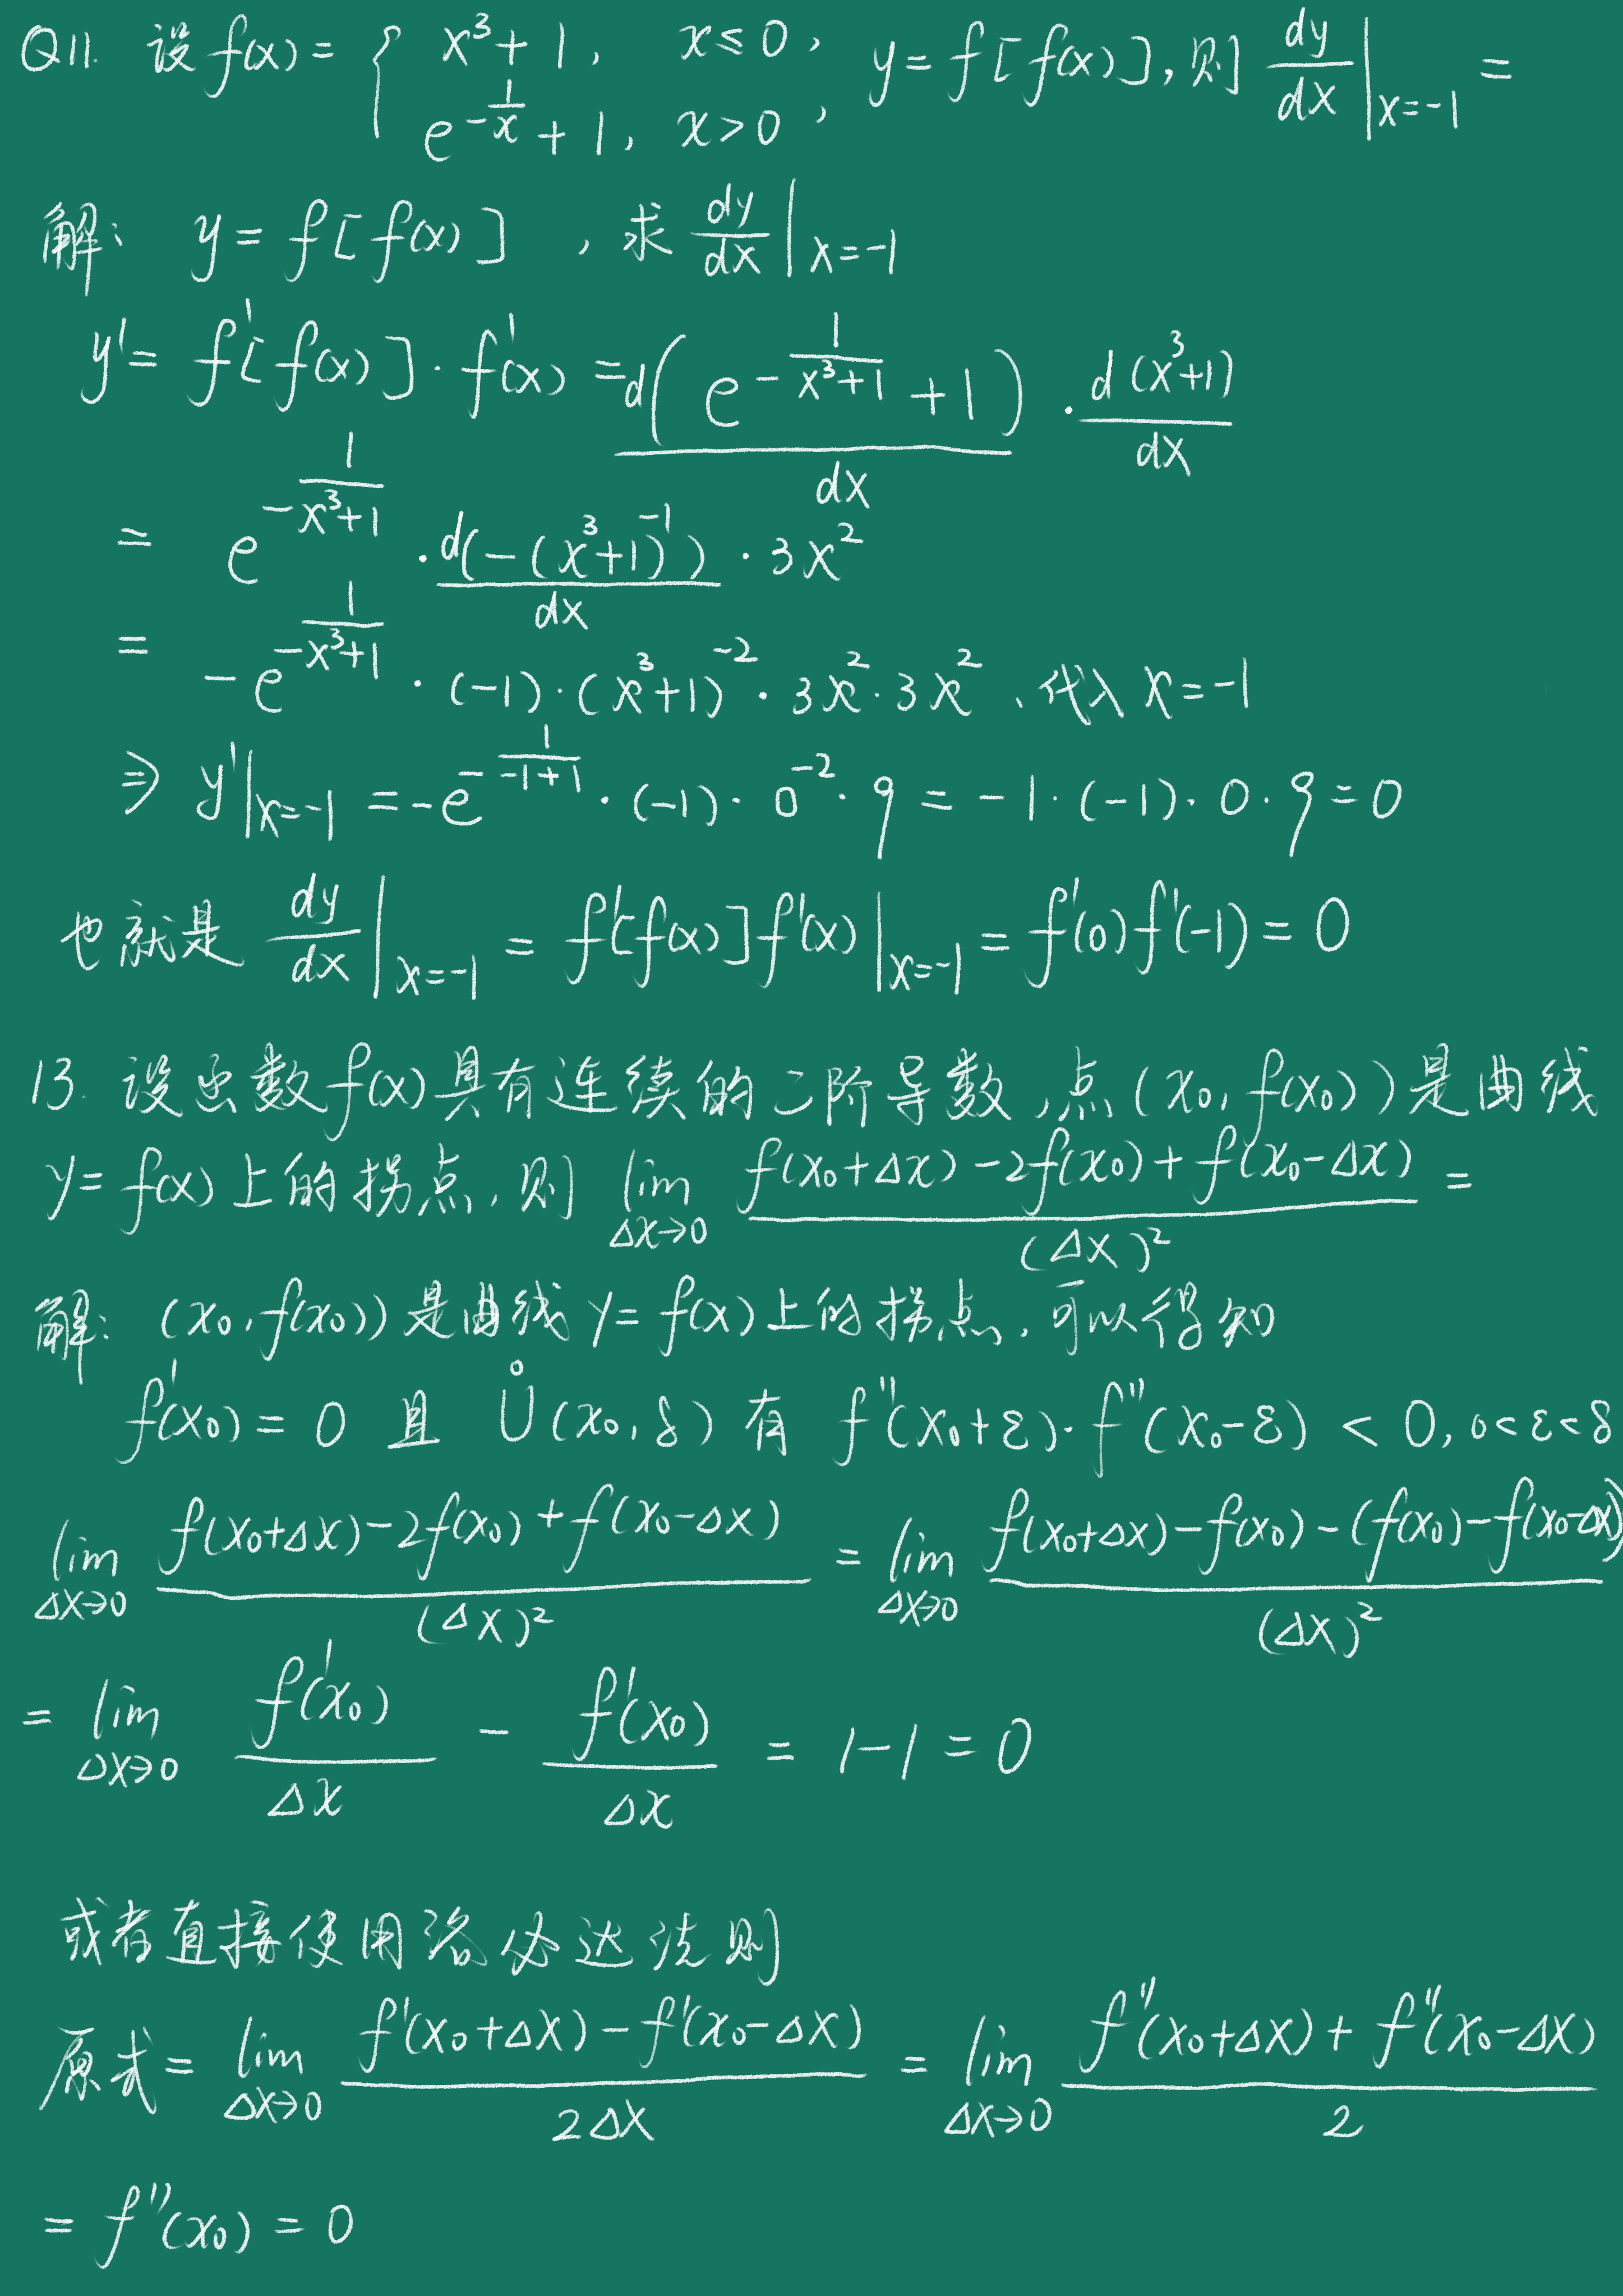 Q11. 设 f(x) = { x³+1, x≤0, e^(-1/x)+1, x>0, y=f[f(x)], 则 dy/dx|x=-1 =
解: y=f[f(x)], 求 dy/dx|x=-1
y' = f'[f(x)]·f'(x) = d(e^(-1/(x³+1))+1)/dx · d(x³+1)/dx
= e^(-1/(x³+1)) · d(-(x³+1)^(-1))/dx · 3x²
= -e^(-1/(x³+1)) · (-1)·(x³+1)^(-2) · 3x²·3x², 代入 x=-1
⇒ y'|x=-1 = -e^(-1/(-1+1)) · (-1)· 0^(-2) · 9 = -1·(-1)·0·9=0
也就是 dy/dx|x=-1 = f'[f(x)]f'(x)|x=-1 = f'(0)f'(-1)=0
13. 设函数f(x)具有连续的二阶导数,点(x₀, f(x₀))是曲线
y=f(x)上的拐点,则 lim Δx→0 (f(x₀+Δx)-2f(x₀)+f(x₀-Δx))/(Δx)² =
解: (x₀,f(x₀))是曲线 y=f(x)上的拐点,可以得知
f'(x₀)=0 且 Ů(x₀,δ) 有 f''(x₀+ε)·f''(x₀-ε) < 0, 0<ε<δ
lim Δx→0 (f(x₀+Δx)-2f(x₀)+f(x₀-Δx))/(Δx)² = lim Δx→0 (f(x₀+Δx)-f(x₀)-(f(x₀)-f(x₀-Δx))/(Δx)²
= lim Δx→0 f'(x₀)/Δx - f'(x₀)/Δx = 1-1=0
或者直接使用洛必达法则
原式= lim Δx→0 (f'(x₀+Δx)-f'(x₀-Δx))/2Δx = lim Δx→0 (f''(x₀+Δx)+f''(x₀-Δx))/2
= f''(x₀) = 0